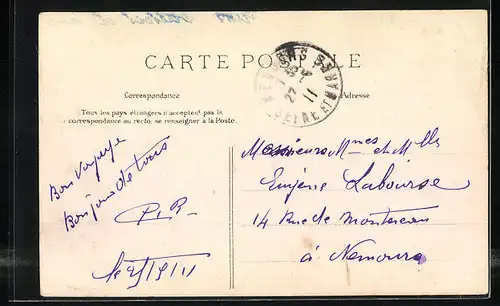 CARTE POSTALE
Correspondance
Adresse
Tous les pays étrangers n'acceptent pas la
correspondance au recto, se renseigner à la Poste.
27
11
Bon voyage
Bonjour de tous
P. R.
Messieurs Mmes et Mlls
Eugène Labourse
14 Rue de Montereau
à Nemours